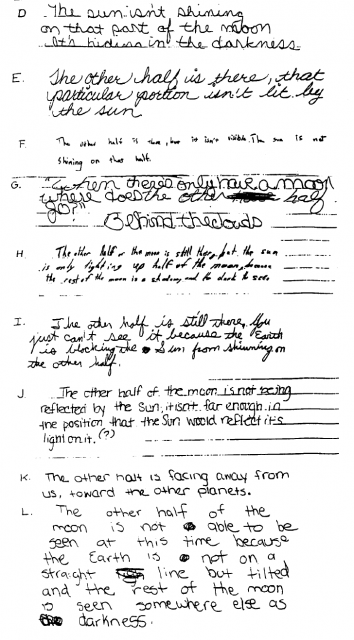 D The sun isn't shining
on that part of the moon
It's hiding in the darkness.
E. The other half is there, that
particular portion isn't lit by
the sun
F. The other half is there, but it isn't visible. The sun is not
shining on that half.
G. "When there's only half a moon
where does the other half
go?"
Behind the clouds
H The other half of the moon is still there, but the sun
is only lighting up half of the moon,
the rest of the moon is a shadow and to dark to see
I. The other half is still there. You
just can't see it because the Earth
is blocking the Sun from shinning on
the other half.
J. The other half of the moon is not being
reflected by the Sun, it isnt far enough in
the position that the Sun would reflect its
light on it. (?)
K. The other half is facing away from
us, toward the other planets.
L. The other half of the
moon is not able to be
seen at this time because
the Earth is not on a
straight line but tilted
and the rest of the moon
is seen somewhere else as
darkness.